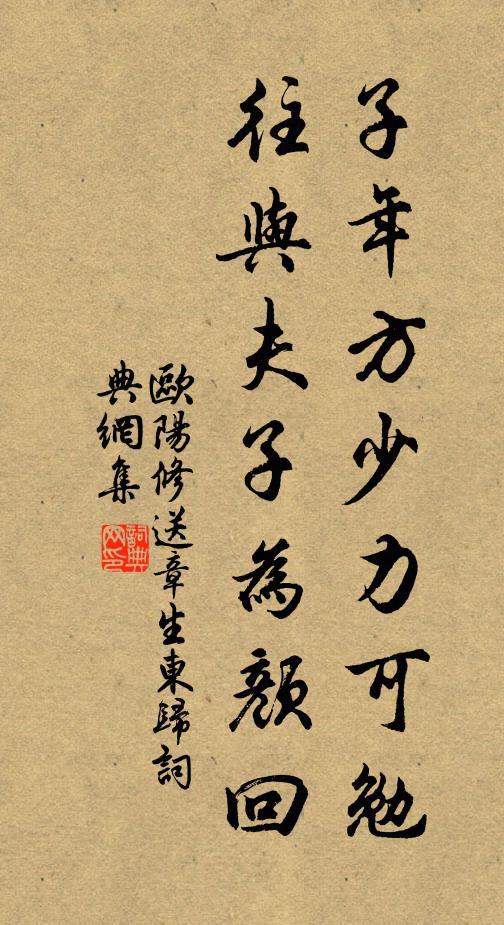 子年方少力可勉
往與夫子為顏回
歐陽修送章生東歸詞
典網集
詞典網印